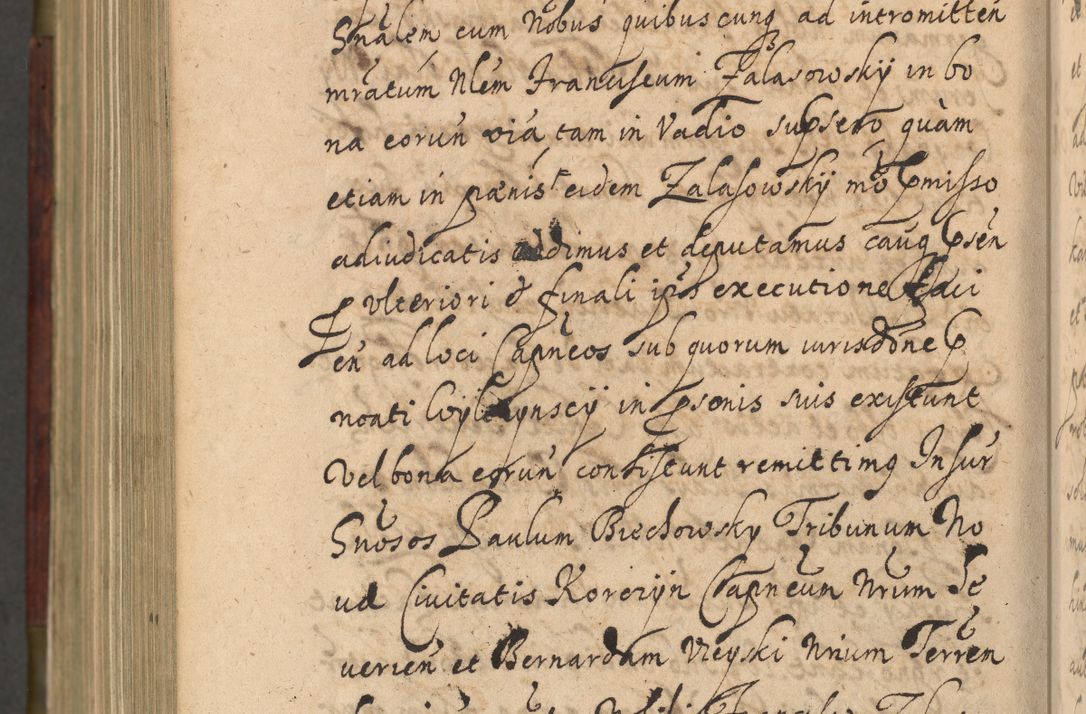 Gnalem cum Nobus quibuscunq ad intromitten
mratum Nlem Franciscum Zalasowskÿ in bo
na eorun oia tam in Vadio supsero quàm
etiam in pænis eidem Zalasowskÿ mo pmisso
adiudicatis addimus et deputamus cauq psen
p vlteriori & finali ipsis executione faci
en ad loci Capneos sub quorum iurisdone p
noati Woÿl in psonis suis existunt
Vel bona eorun consistunt remittimq Insur
Gnosos Paulum Biechowsky Tribunum No
ud Civitatis Korczÿn Capneum Nrum Se
uerien et Bernardam Vieyski Nrium Terren